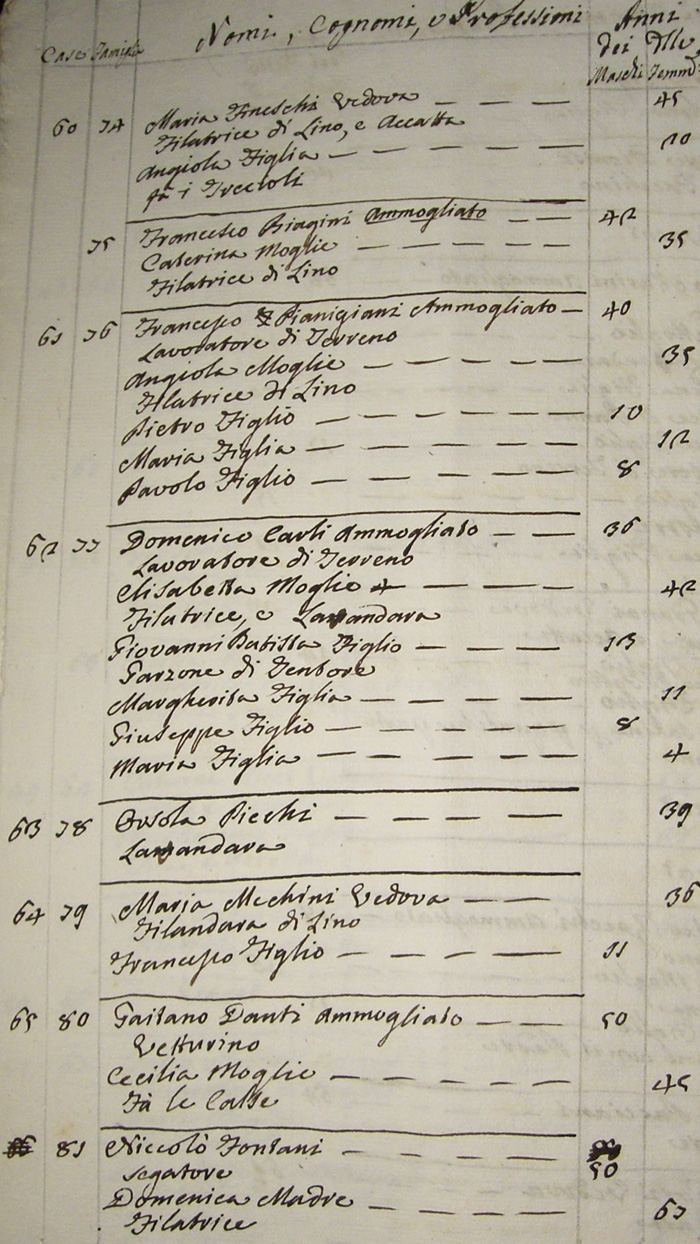 Nomi, Cognomi, e Professioni
Anni
Case Famiglie
dei dlle
Maschi Femm:
60 74 Maria Fineschi Vedova — — — — 45
Filatrice di Lino, e Accatta
Angiola Figlia — — — — — 10
fà i Treccioli
75 Francesco Biagini Ammogliato — — 42
Caterina Moglie — — — — — 35
Filatrice di Lino
61 76 Francesco Pianigiani Ammogliato — 40
Lavoratore di Terreno
Angiola Moglie — — — — — 35
Filatrice di Lino
Pietro Figlio — — — — — — 10
Maria Figlia — — — — — — 12
Pavolo Figlio — — — — — — 8
62 77 Domenico Carli Ammogliato — — 36
Lavoratore di Terreno
Elisabetta Moglie — — — — 42
Filatrice, e Lavandara
Giovanni Batista Figlio — — — — 13
Garzone di Tentore
Margherita Figlia — — — — — 11
Giuseppe Figlio — — — — — 8
Maria Figlia — — — — — — 4
63 78 Orsola Picchi — — — — — 39
Lavandara
64 79 Maria Mechini Vedova — — — 36
Filandara di Lino
Francesco Figlio — — — — — 11
65 80 Gaitano Danti Ammogliato — — — 50
Vetturino
Cecilia Moglie — — — — — 45
Fà le Calse
81 Niccolò Fontani — — — — — 50
Segatore
Domenica Madre — — — — — 67
Filatrice